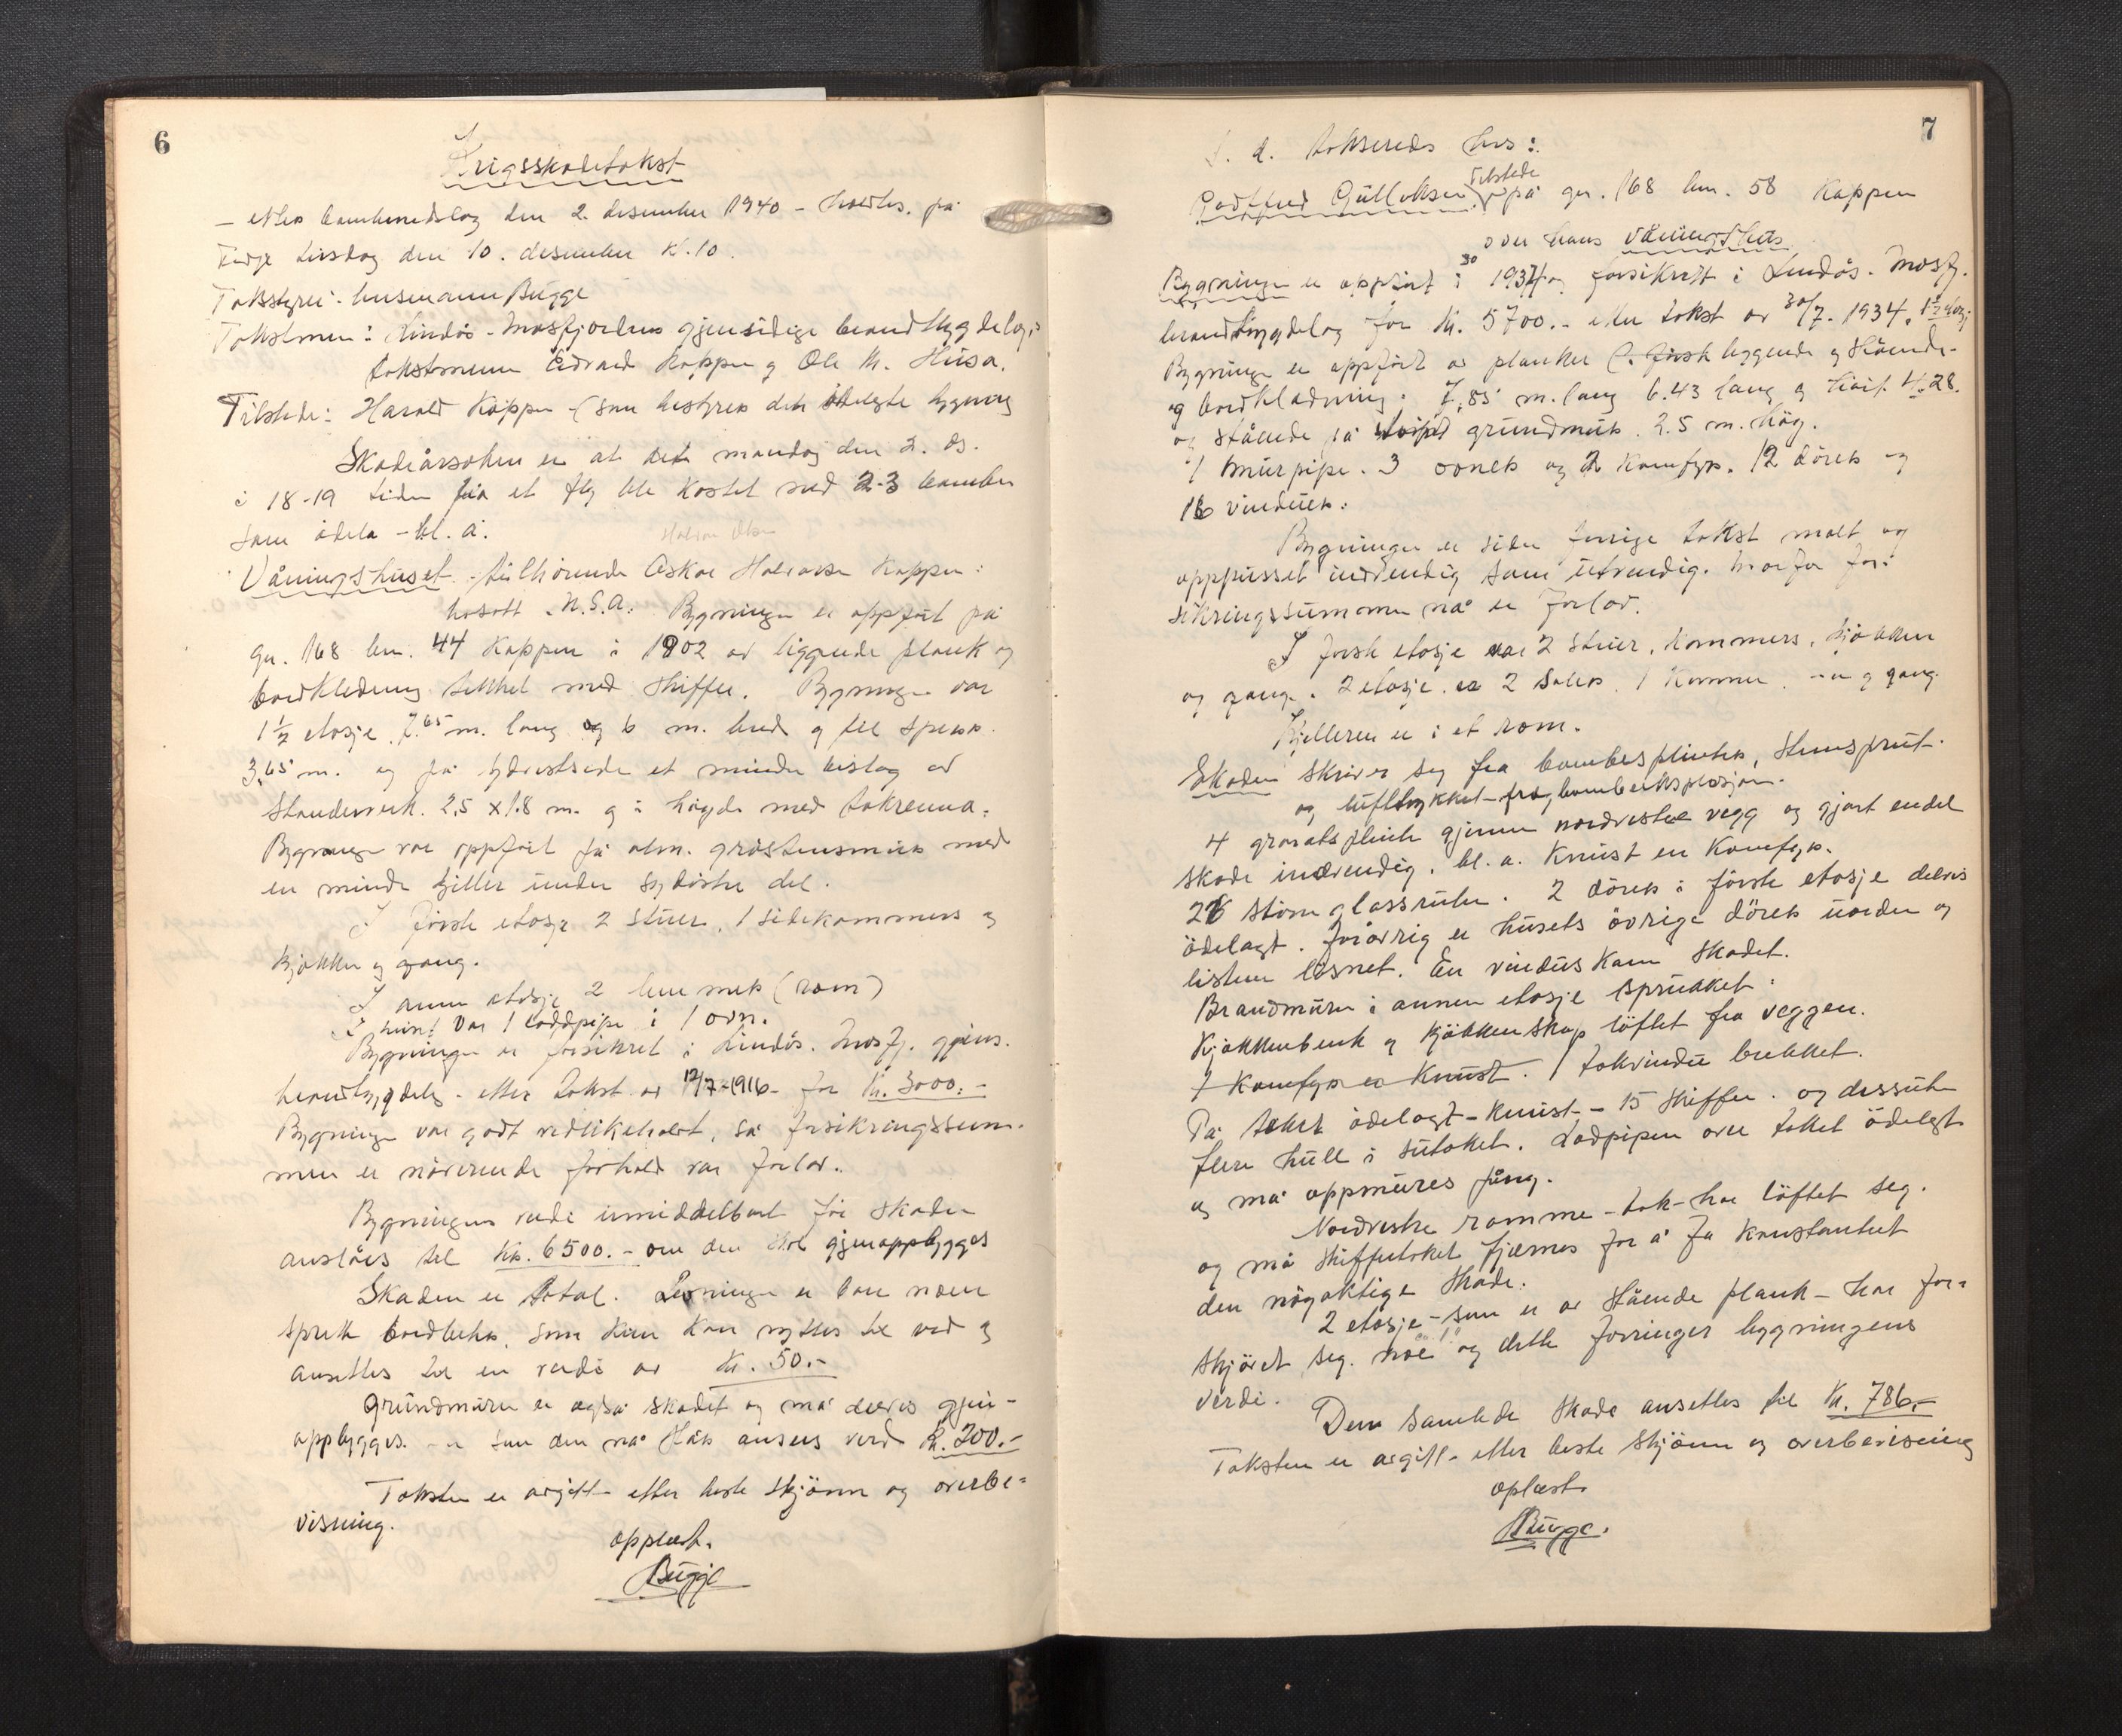 6
Krigsskadetakst
– etter bombenedslag den 2. desember 1940 – holdtes. på
tirsdag den 10. desember kl. 10.
Takststyrer: lensmann Bugge
Takstmenn: Lindås-Masfjordens gjensidige brandbygdelags
takstmenn Edvard Kappen og Ole M. Husa.
Tilstede: Harald Kappen (som bestyrer det ødelagte bygning
Skadeårsaken er at det mandag den 2. ds.
i 18-19 tiden fra et fly ble kastet ned 2-3 bomber
som ødela – bl. a.
Våningshuset tilhørende Oskar Halvorsen Kappen:
bosatt U.S.A. Bygningen er oppført på
gn. 168 bn. 44 Kappen i 1902 av liggende plank og
bordkledning tekket med skiffer. Bygningen var
1½ etasje 7.65 m. lang og 6 m. bred og til spers
3,65 m. og på sydvestside et mindre bislag av
Standerverk. 2,5 x 1.8 m. og i høyde med takrenna.
Bygningen var oppført på alm. gråstensmur med
en mindre kjeller under sydøstre del.
I første etasje 2 stuer, 1 sidekammers og
kjøkken og gang.
I annen etasje 2 lemmer (rom)
I huset var 1 loddpipe i 1 ovn.
Bygningen er forsikret i Lindås. Masfj. gjens.
brandbygdelag – etter takst av 12/7-1916 – for kr. 3000.-
Bygningen var godt vedlikeholdt, så forsikringssum-
men er nåværende forhold var for lav.
Bygningens verdi umiddelbart før skaden
anslåes til kr. 6500.- om den skal gjenoppbygges
Skaden er total. Levningen er bare noen
som kun kan nyttes til ved og
ansettes til en verdi av kr. 50.-
Grunnmuren er også skadet og må delvis gjen-
oppbygges. – som den nå står ansees verd kr. 200.-
Taksten er avgitt etter beste skjønn og overbe-
visning.
opplest.
Bugge
7
S. d. takseredes hos:
Godtfred Gulleksen tilstede på gn. 168 bn. 58 Kappen
over hans våningshus
Bygningen er oppført i 1930 og forsikret i Lindås. Masfj.
brandbygdelag for kr. 5700.- etter takst av 30/7. 1934. 1½ etasj
Bygningen er oppført av planker (i første liggende og stående-
og bordkledning. 7,85 m. lang 6.43 lang og høit. 4.28.
og stående på støpt grundmur. 2.5 m. høg.
1 murpipe. 3 ovner og 2 komfyr. 12 dører og
16 vinduer.
Bygningen er siden forrige takst malt og
oppusset innvendig som utvendig. hvorfor for-
sikringssummen nå er for lav.
I første etasje var 2 stuer, kammers, kjøkken
og gang. 2 etasje. er 2 saler 1 kammer og gang.
Kjelleren er i et rom.
Skaden skriver seg fra bombesplinter, stensprut.
og lufttrykket – fra bombeeksplosjon.
4 granatsplinter gjennem nordvestre vegg og gjort endel
skade innvendig. bl. a. knust en komfyr.
26 store glassruter. 2 dører i første etasje delvis
ødelagt. Forøvrig er husets øvrige dører uorden og
listene løsnet. En vinduskarm skadet.
Brandmuren i annen etasje sprukket.
Kjøkkenbenk og kjøkkenskap løftet fra veggen.
1 komfyr er knust. 1 takvindu brekket.
På taket ødelagt – knust – 15 skiffer. og dessuten
flere hull i sutaket. Lodpipen over taket ødelagt
og må oppmures påny.
Nordvestre ramme – tak – har løftet seg.
og må skiffertaket fjernes for å få konstantert
den nøyaktige skade.
2 etasje – som er av stående plank – har for-
skjøvet seg. noe og dette forringer bygningens
verdi.
Den samlede skade ansettes til kr. 786.-
Taksten er avgitt etter beste skjønn og overbevisning
oplest.
Bugge.